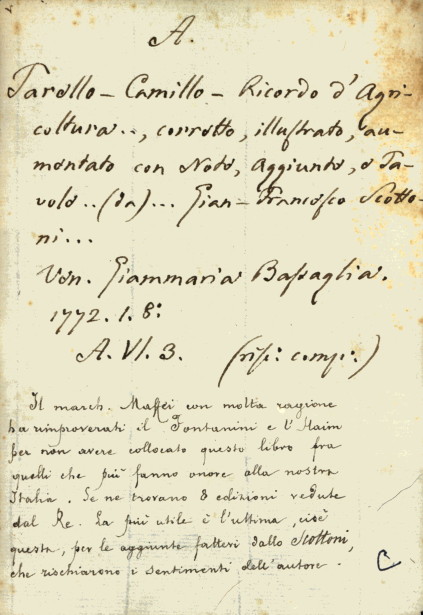 A.
Tarello - Camillo - Ricordo d'Agri-
coltura .., corretto, illustrato, au-
mentato con Note, Aggiunte, e Ta-
vole .. (da) ... Gian-Francesco Scotto-
ni ...
Ven. Giammaria Bassaglia.
1772. 1. 8:
A. VI. 3. (risp: comp:)
Il march. Maffei con molta ragione
ha rimproverati il Fontanini e l'Haim
per non avere collocato questo libro fra
quelli che più fanno onore alla nostra
Italia. Se ne trovano 8 edizioni vedute
dal Re. La più utile è l'ultima, cioè
questa, per le aggiunte fattevi dallo Scottoni,
che rischiarono i sentimenti dell'autore.
C